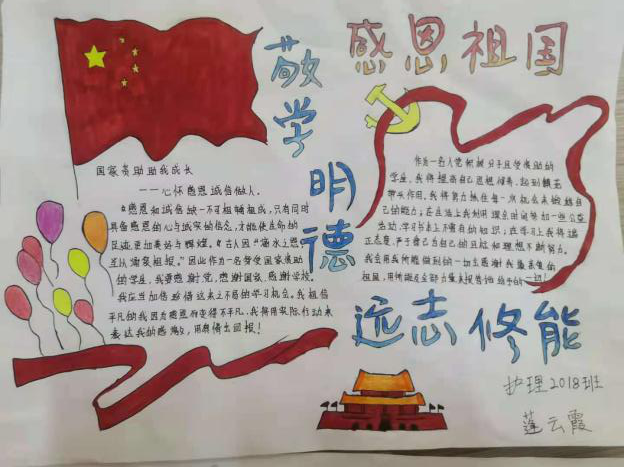 感恩祖国
敬学
明德
远志修能
国家资助助我成长
——心怀感恩诚信做人。
"感恩和诚信缺一不可相辅相成,只有同时
具备感恩的心与诚实的信念,才能使良好的
因"滴水之恩
当以涌泉相报。"因此作为一名受国家资助
的学生,我要感谢党,感谢国家,感谢学校。
我应当加倍珍惜这来之不易的学习机会。我相信
平凡的我因为感恩而变得不平凡,我将用实际行动来
表达我的感激,用真情去回报!
作为一名入党积极分子且受资助的
学生,我将提高自己思想,起到模范
带头作用。我将努力抓住每一次机会来锻炼自
己的能力,在生活上我利用课余时间参加一些公益
活动,学习书本上不曾有的知识;在学习上我将端
正态度,严于律己为自己的目标和理想不断努力。
我会用我所能做到的一切去感谢我最亲爱的
祖国,用所能及全部力量来报答给予的一切!
护理2018班
莲云霞